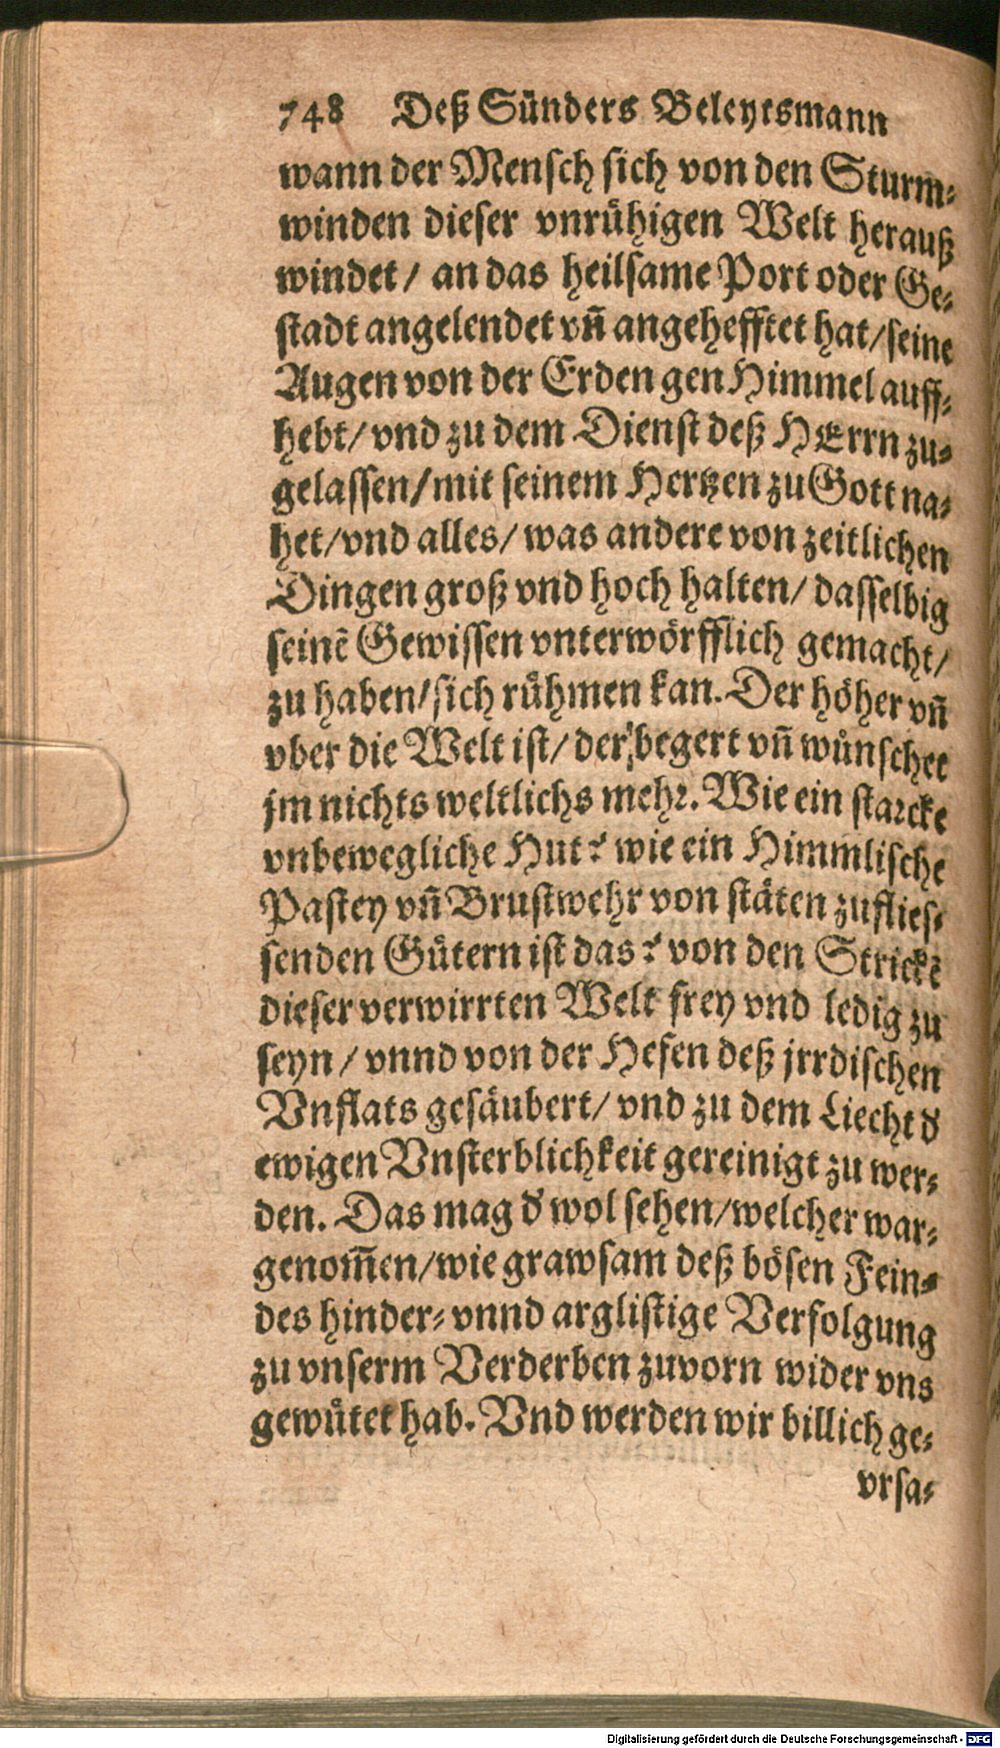 748 Deß Sünders Beleytsmann
wann der Mensch sich von den Sturm-
winden dieser vnrühigen Welt herauß
windet/ an das heilsame Port oder Ge-
stadt angelendet vñ angehefftet hat/seine
Augen von der Erden gen Himmel auff-
hebt/ vnd zu dem Dienst deß HErrn zu-
gelassen/mit seinem Hertzen zu Gott na-
het/vnd alles/ was andere von zeitlichen
Dingen groß vnd hoch halten/ dasselbig
seinẽ Gewissen vnterwörfflich gemacht/
zu haben/sich rühmen kan. Der höher vñ
vber die Welt ist/ der begert vñ wünschet
jm nichts weltlichs mehr. Wie ein starcke
vnbewegliche Hut? wie ein Himmlische
Pastey vñ Brustwehr von stäten zufließ-
senden Gütern ist das? von den Strickẽ
dieser verwirrten Welt frey vnd ledig zu
seyn / vnnd von der Hefen deß jrrdischen
Vnflats gesäubert/ vnd zu dem Liecht d̕
ewigen Vnsterblichkeit gereinigt zu wer-
den. Das mag d̕ wol sehen/welcher war-
genom̃en/wie grawsam deß bösen Fein-
des hinder- vnnd arglistige Verfolgung
zu vnserm Verderben zuvorn wider vns
gewütet hab. Vnd werden wir billich ge-
vrsa-
Digitalisierung gefördert durch die Deutsche Forschungsgemeinschaft - DFG